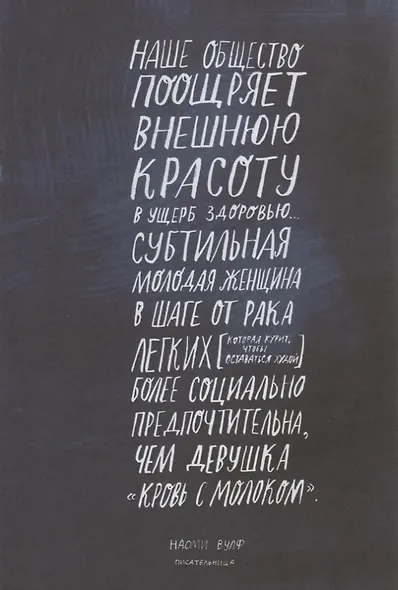 НАШЕ ОБЩЕСТВО
ПООЩРЯЕТ
ВНЕШНЮЮ
КРАСОТУ
В УЩЕРБ ЗДОРОВЬЮ...
СУБТИЛЬНАЯ
МОЛОДАЯ ЖЕНЩИНА
В ШАГЕ ОТ РАКА
ЛЕГКИХ [КОТОРАЯ КУРИТ,
ЧТОБЫ
ОСТАВАТЬСЯ ХУДОЙ]
БОЛЕЕ СОЦИАЛЬНО
ПРЕДПОЧТИТЕЛЬНА,
ЧЕМ ДЕВУШКА
«КРОВЬ С МОЛОКОМ».
НАОМИ ВУЛФ
ПИСАТЕЛЬНИЦА